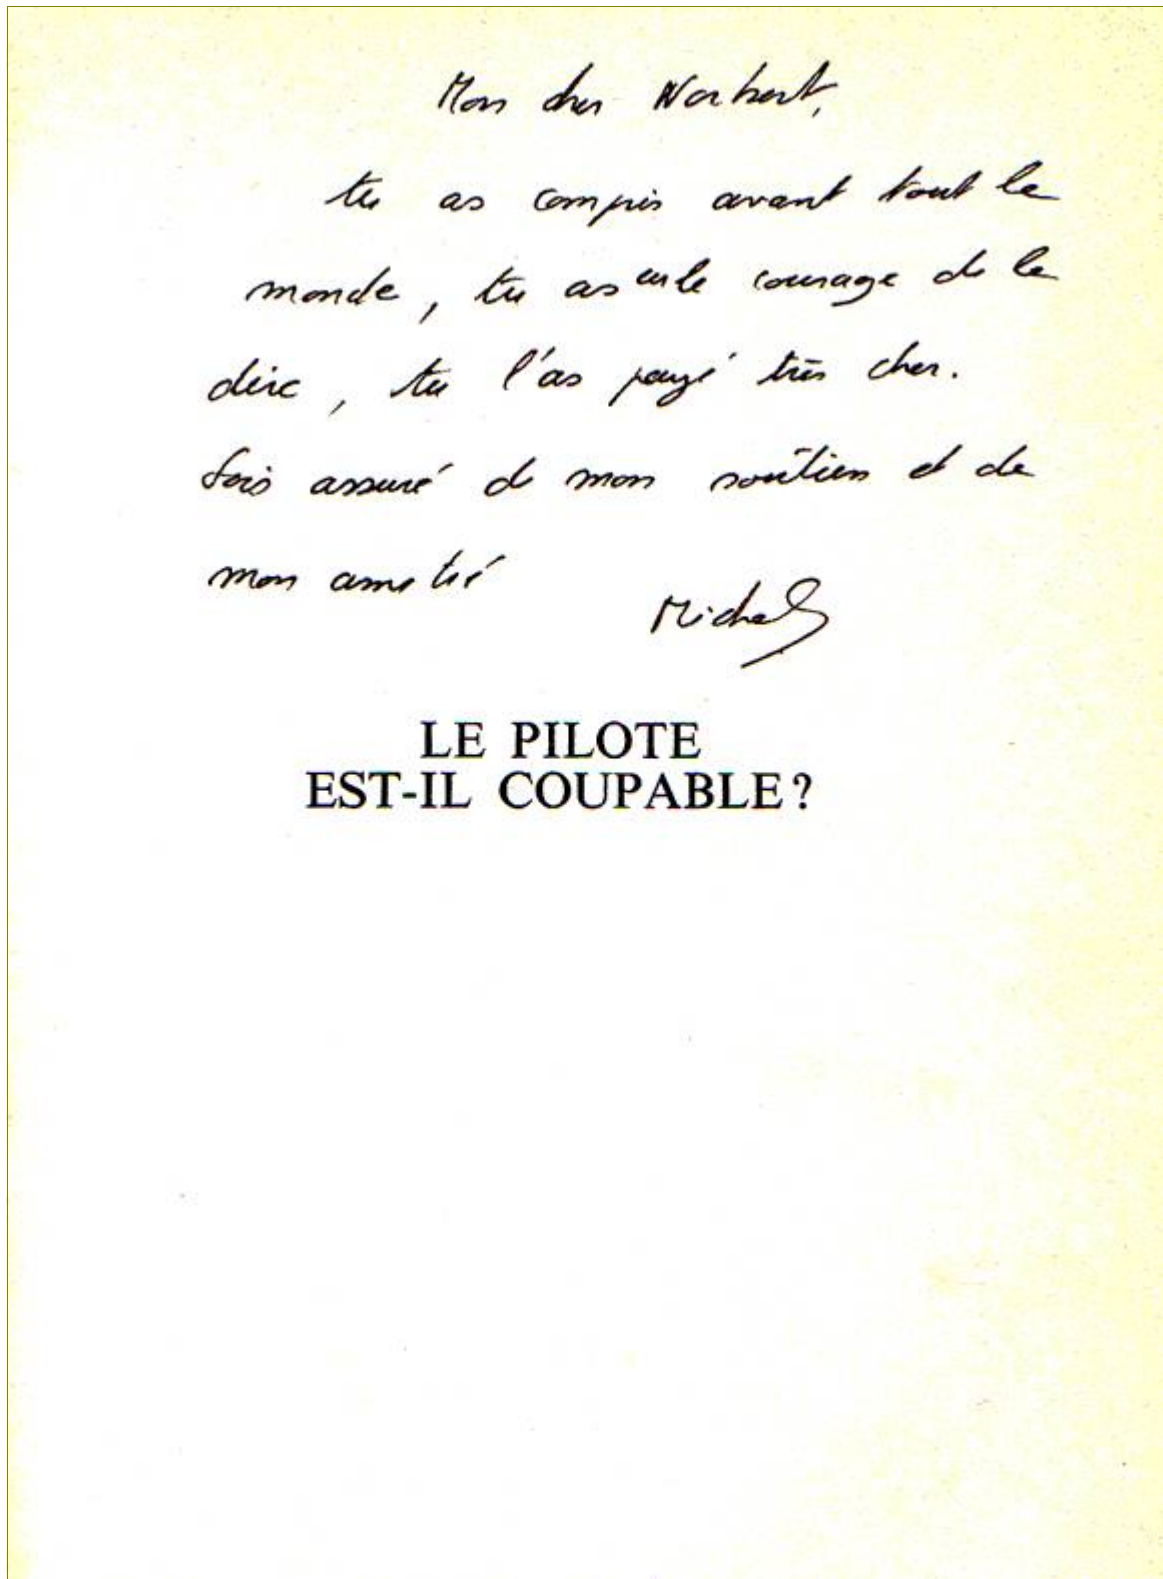 Mon cher Norbert,
tu as compris avant tout le
monde, tu as eu le courage de le
dire, tu l'as payé très cher.
Sois assuré de mon soutien et de
mon amitié
Michel
LE PILOTE
EST-IL COUPABLE ?